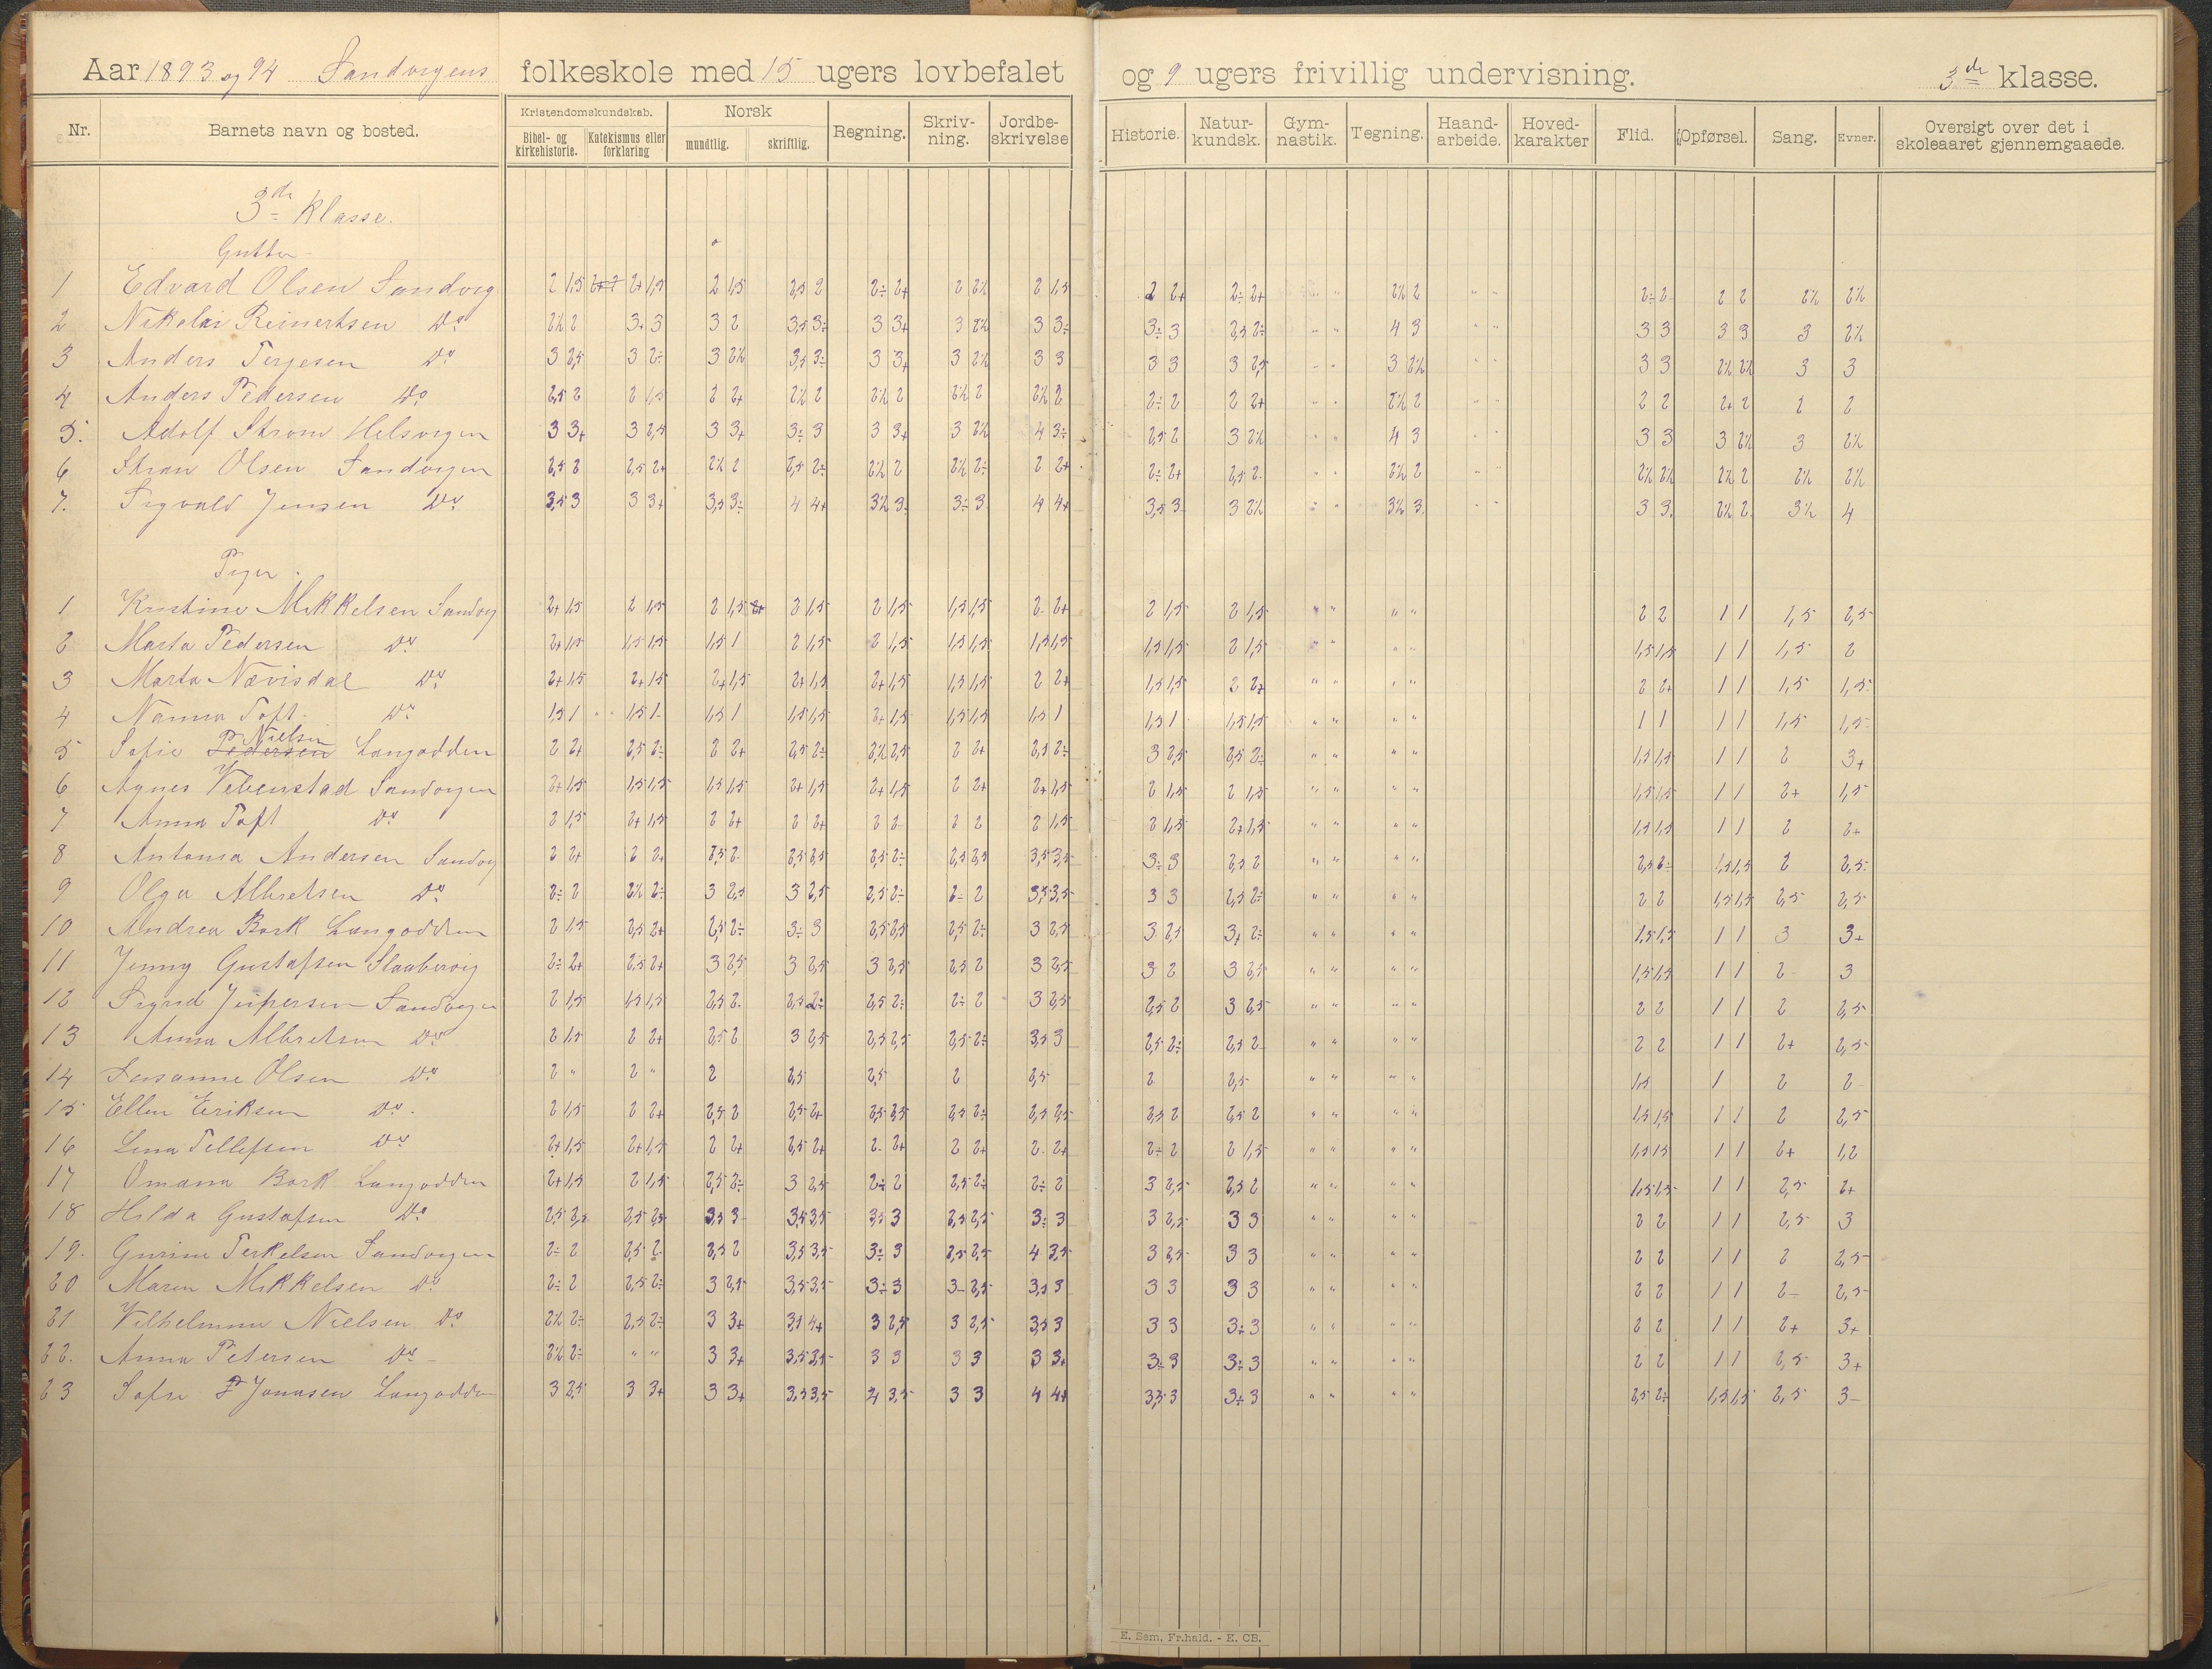 Aar 1893 og 94 Sandvigens folkeskole med 15 ugers lovbefalet og 9 ugers frivillig undervisning. 3de klasse.
Nr. Barnets navn og bosted. Kristendomskundskab. Bibel- og kirkehistorie. Katekismus eller forklaring Norsk mundtlig. skriftlig. Regning. Skriv-ning. Jordbe-skrivelse Historie. Natur-kundsk. Gym-nastik. Tegning. Haand-arbeide. Hoved-karakter Flid. Opførsel. Sang. Evner. Oversigt over det i skoleaaret gjennemgaaede.
3de Klasse.
Gutter
1 Edvard Olsen Sandvig 2 1,5 2+ 1,5 2 1,5 2,5 2 2÷ 2+ 2 2½ 2 1,5 2 2+ 2÷ 2+ " " 2½ 2 " " 2÷ 2 2 2 2½ 2½
2 Nikolai Reinertsen Do 2½ 2 3+ 3 3 2 3,5 3÷ 3 3+ 3 2½ 3 3÷ 3÷ 3 2,5 2÷ " " 4 3 " " 3 3 3 3 3 2½
3 Anders Terjesen Do 3 2,5 3 2÷ 3 2½ 3,5 3÷ 3 3+ 3 2½ 3 3 3 3 3 2,5 " " 3 2½ " " 3 3 2½ 2½ 3 3
4 Anders Pedersen Do 2,5 2 2 1,5 2 2+ 2½ 2 2½ 2 2½ 2 2½ 2 2÷ 2 2 2+ " " 2½ 2 " " 2 2 2+ 2 2 2
5. Adolf Strøm Helsvigen 3 3+ 3 2,5 3 3+ 3÷ 3 3 3+ 3 2½ 4 3÷ 2,5 2 3 2½ " " 4 3 " " 3 3 3 2½ 3 2½
6 Olsen Sandvigen 2,5 2 2,5 2+ 2½ 2 2,5 2÷ 2½ 2 2½ 2÷ 2 2+ 2÷ 2+ 2,5 2 " " 2½ 2 " " 2½ 2½ 2½ 2 2½ 2½
7. Sigvald Jensen Do 3,5 3 3 3+ 3,5 3÷ 4 4+ 3½ 3 3÷ 3 4 4+ 3,5 3 3 2½ " " 3½ 3 " " 3 3 2½ 2 3½ 4
Piger
1 Kristine Mikkelsen Sandvig 2+ 1,5 2 1,5 2 1,5 2 1,5 2 1,5 1,5 1,5 2 2+ 2 1,5 2 1,5 " " " " 2 2 1 1 1,5 2,5
2 Marta Pedersen Do 2+ 1,5 1,5 1,5 1,5 1 2 1,5 2 1,5 1,5 1,5 1,5 1,5 1,5 1,5 2 1,5 " " " " 1,5 1,5 1 1 1,5 2
3 Marta Nævisdal Do 2+ 1,5 2+ 1,5 2+ 1,5 2+ 1,5 2+ 1,5 1,5 1,5 2 2+ 1,5 1,5 2 2+ " " " " 2 2+ 1 1 1,5 1,5
4 Nanna Toft Do 1,5 1 1,5 1 1,5 1 1,5 1,5 2+ 1,5 1,5 1,5 1,5 1 1,5 1 1,5 1,5 " " " " 1 1 1 1 1,5 1,5
5 Sofie Pedersen Nielsen Langodden 2 2+ 2,5 2÷ 2 2+ 2,5 2÷ 2½ 2,5 2 2+ 2,5 2÷ 3 2,5 2,5 2÷ " " " " 1,5 1,5 1 1 2 3+
6 Agnes Vebenstad Sandvigen 2+ 1,5 1,5 1,5 1,5 1,5 2+ 1,5 2+ 1,5 2 2+ 2+ 1,5 2 1,5 2 1,5 " " " " 1,5 1,5 1 1 2+ 1,5
7 Anna Toft Do 2 1,5 2+ 1,5 2 2+ 2 2+ 2 2 2 2 2 1,5 2 1,5 2+ 1,5 " " " " 1,5 1,5 1 1 2 2+
8 Antonia Andersen Sandvig 2 2+ 2 2+ 2,5 2 2,5 2,5 2,5 2÷ 2,5 2,5 3,5 3,5 3÷ 3 2,5 2 " " " " 2,5 2÷ 1,5 1,5 2 2,5
9 Olga Albretsen Do 2÷ 2 2½ 2÷ 3 2,5 3 2,5 2,5 2÷ 2÷ 2 3,5 3,5 3 3 2,5 2÷ " " " " 2 2 1,5 1,5 2,5 2,5
10 Andrea Bork Langodden 2 1,5 2,5 2+ 2,5 2÷ 3÷ 3 2,5 2,5 2,5 2÷ 3 2,5 3 2,5 3+ 2÷ " " " " 1,5 1,5 1 1 3 3+
11 Jenny Gustafsen Slaabervig 2÷ 2+ 2,5 2+ 3 2,5 3 2,5 3 2,5 2,5 2 3 2,5 3 2 3 2,5 " " " " 1,5 1,5 1 1 2 3
12 Sigrid Jespersen Sandvigen 2 1,5 1,5 1,5 2,5 2 2,5 2÷ 2,5 2÷ 2÷ 2 3 2,5 2,5 2 3 2,5 " " " " 2 2 1 1 2 2,5
13 Anna Albretsen Do 2 1,5 2 2+ 2,5 2 3 2,5 2,5 2,5 2,5 2÷ 3,5 3 2,5 2÷ 2,5 2 " " " " 2 2 1 1 2+ 2,5
14 Susanne Olsen Do 2 " 2 " 2 2,5 2,5 2 2,5 2 2,5 " " " " 1,5 1 2 2
15 Ellen Eriksen Do 2 1,5 2 2+ 2,5 2 2,5 2+ 2,5 2,5 2,5 2÷ 2,5 2,5 2,5 2 2,5 2 " " " " 1,5 1,5 1 1 2 2,5
16 Lina Tellefsen Do 2+ 1,5 2+ 1,5 2 2+ 2,5 2+ 2 2+ 2 2+ 2 2+ 2÷ 2 2 1,5 " " " " 1,5 1,5 1 1 2+ 1,2
17 Omana Bork Langodden 2+ 1,5 2 1,5 2,5 2÷ 3 2,5 2÷ 2 2,5 2÷ 2÷ 2 3 2,5 2,5 2 " " " " 1,5 1,5 1 1 2,5 2+
18 Hilda Gustafsen Do 2,5 2,5 2,5 2,5 3,5 3 3,5 3,5 3,5 3 2,5 2,5 3÷ 3 3 2,5 3 3 " " " " 2 2 1 1 2,5 3
19. Gurine Terkelsen Sandvigen 2÷ 2 2,5 2 2,5 2 3,5 3,5 3÷ 3 2,5 2,5 4 3,5 3 2,5 3 3 " " " " 2 2 1 1 2 2,5
20 Maren Mikkelsen Do 2÷ 2 2,5 2÷ 3 2,5 3,5 3,5 3÷ 3 3- 2,5 3,5 3 3 3 3 3 " " " " 2 2 1 1 2- 2,5
21 Vilhelmine Nielsen Do 2½ 2÷ 2,5 2÷ 3 3+ 3,5 4+ 3 2,5 3 2,5 3,5 3 3 3 3÷ 3 " " " " 2 2 1 1 2+ 3+
22. Anna Petersen Do 2½ 2÷ " " 3 3+ 3,5 3,5 3 3 3 3 3 3+ 3÷ 3 3÷ 3 " " " " 2 2 1 1 2,5 3+
23 Sofie Jonasen Langodden 3 2,5 3 3+ 3 3+ 3,5 3,5 4 3,5 3 3 4 4+ 3,5 3 3÷ 3 " " " " 2,5 2÷ 1,5 1,5 2,5 3-
E. Sem, Fr.hald. - E. CB.